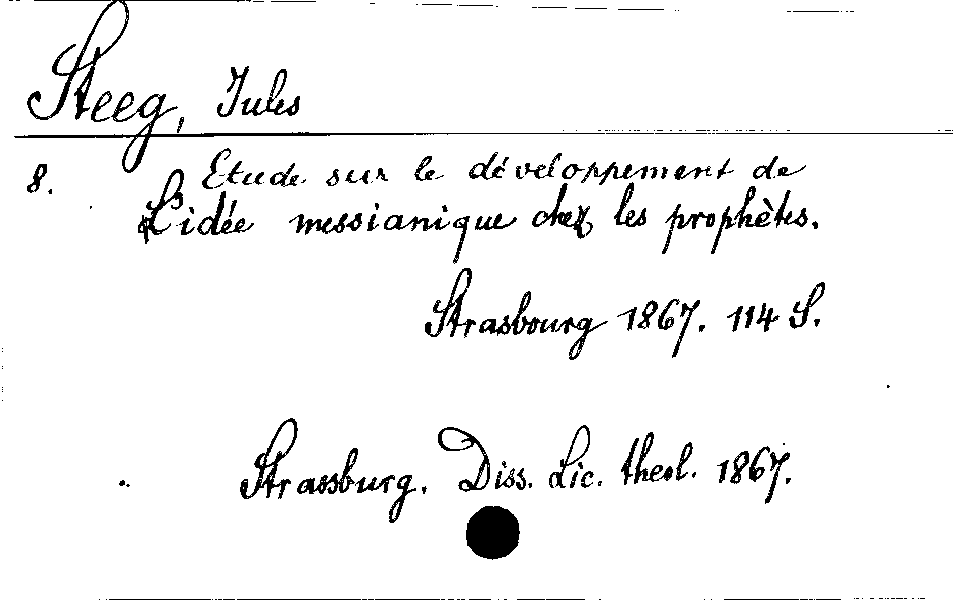 Steeg, Jules
8. Etude sur le développement de
L'idée messianique chez les prophètes.
Strasbourg 1867. 114 S.
Strassburg. Diss. Lic. theol. 1867.